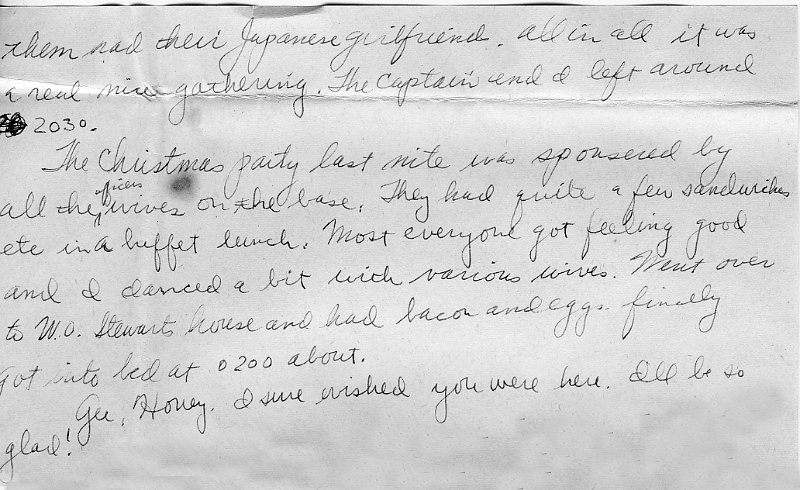 them had their Japanese girlfriend. All in all it was
a real nice gathering. The Captain and I left around
2030.
The Christmas party last nite was sponsered by
all the officers wives on the base. They had quite a few sandwiches
etc in a buffet lunch. Most everyone got feeling good
and I danced a bit with various wives. Went over
to W.O. Stewarts house and had bacon and eggs. finally
got into bed at 0200 about.
Gee, Honey. I sure wished you were here. I'll be so
glad!